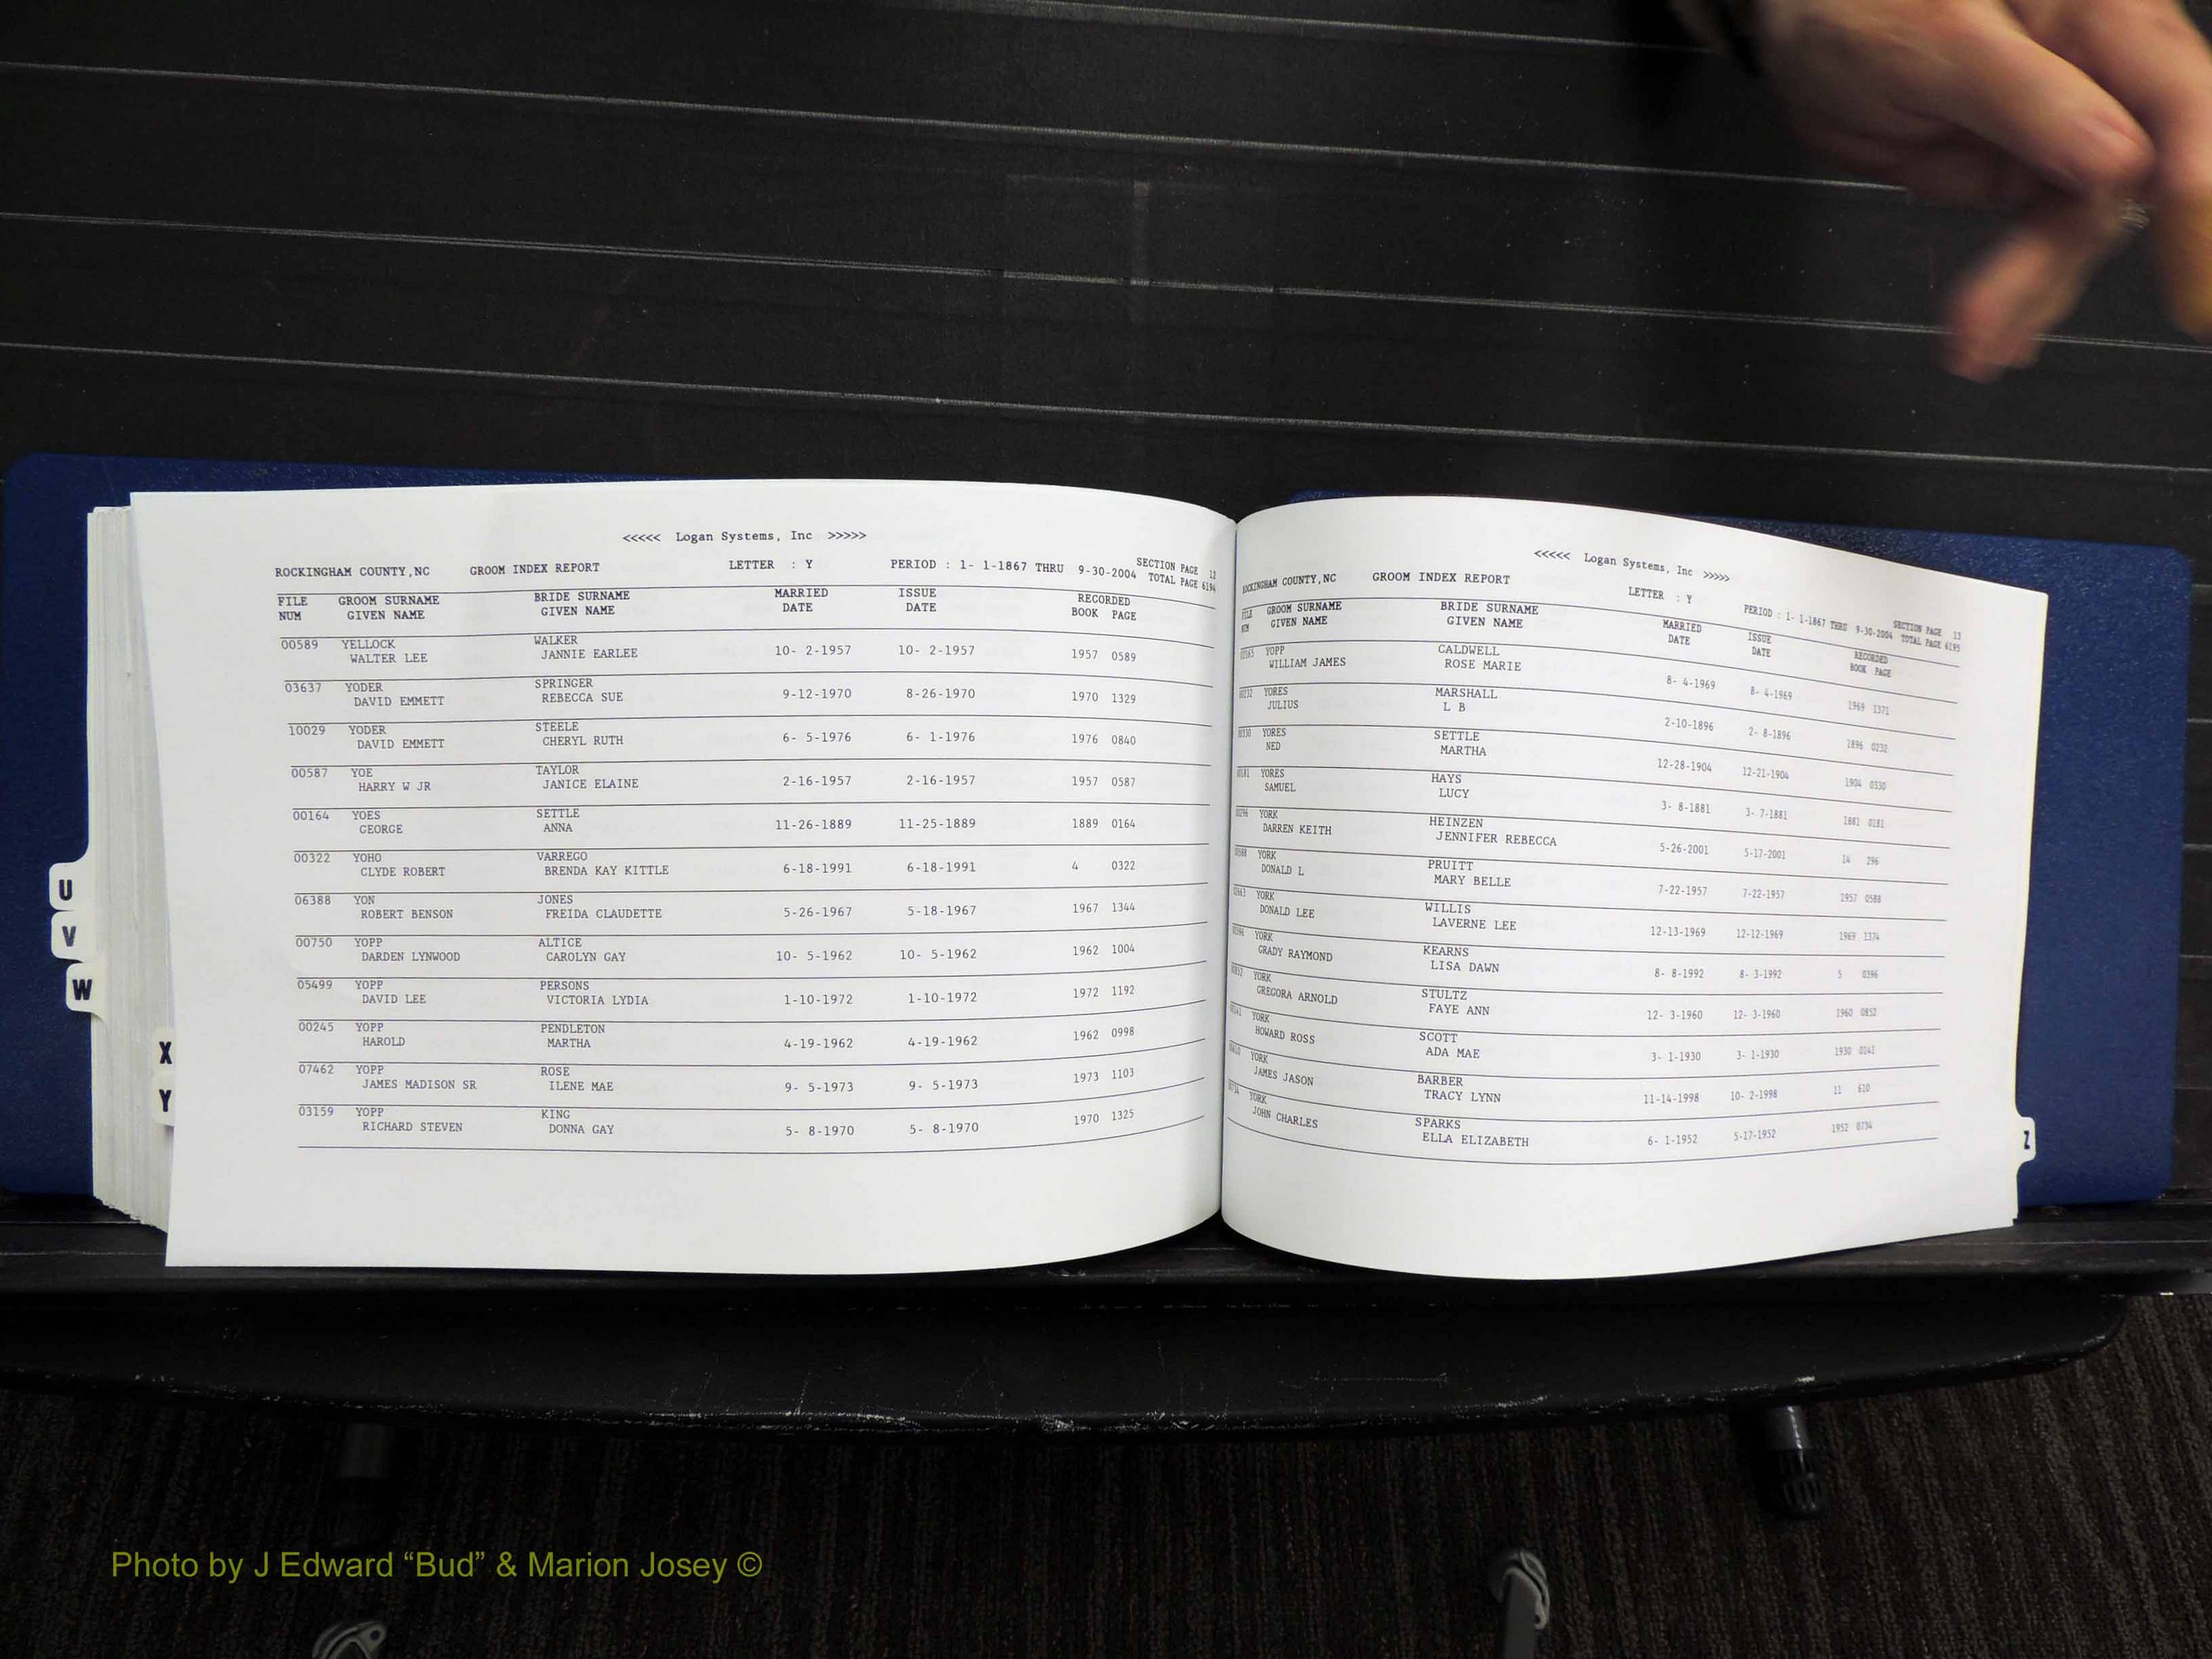 <<<<< Logan Systems, Inc >>>>>
ROCKINGHAM COUNTY,NC GROOM INDEX REPORT LETTER : Y PERIOD : 1- 1-1867 THRU 9-30-2004 SECTION PAGE 12
TOTAL PAGE 6194
FILE GROOM SURNAME BRIDE SURNAME MARRIED ISSUE RECORDED
NUM GIVEN NAME GIVEN NAME DATE DATE BOOK PAGE
00589 YELLOCK WALKER
WALTER LEE JANNIE EARLEE 10- 2-1957 10- 2-1957 1957 0589
03637 YODER SPRINGER
DAVID EMMETT REBECCA SUE 9-12-1970 8-26-1970 1970 1329
10029 YODER STEELE
DAVID EMMETT CHERYL RUTH 6- 5-1976 6- 1-1976 1976 0840
00587 YOE TAYLOR
HARRY W JR JANICE ELAINE 2-16-1957 2-16-1957 1957 0587
00164 YOES SETTLE
GEORGE ANNA 11-26-1889 11-25-1889 1889 0164
00322 YOHO VARREGO
CLYDE ROBERT BRENDA KAY KITTLE 6-18-1991 6-18-1991 4 0322
06388 YON JONES
ROBERT BENSON FREIDA CLAUDETTE 5-26-1967 5-18-1967 1967 1344
00750 YOPP ALTICE
DARDEN LYNWOOD CAROLYN GAY 10- 5-1962 10- 5-1962 1962 1004
05499 YOPP PERSONS
DAVID LEE VICTORIA LYDIA 1-10-1972 1-10-1972 1972 1192
00245 YOPP PENDLETON
HAROLD MARTHA 4-19-1962 4-19-1962 1962 0998
07462 YOPP ROSE
JAMES MADISON SR ILENE MAE 9- 5-1973 9- 5-1973 1973 1103
03159 YOPP KING
RICHARD STEVEN DONNA GAY 5- 8-1970 5- 8-1970 1970 1325
U
V
W
X
Y
<<<<< Logan Systems, Inc >>>>>
ROCKINGHAM COUNTY,NC GROOM INDEX REPORT LETTER : Y PERIOD : 1- 1-1867 THRU 9-30-2004 SECTION PAGE 13
TOTAL PAGE 6195
FILE GROOM SURNAME BRIDE SURNAME MARRIED ISSUE RECORDED
NUM GIVEN NAME GIVEN NAME DATE DATE BOOK PAGE
YOPP CALDWELL
WILLIAM JAMES ROSE MARIE 8- 4-1969 8- 4-1969 1969 1371
00232 YORES MARSHALL
JULIUS L B 2-10-1896 2- 8-1896 1896 0232
00330 YORES SETTLE
NED MARTHA 12-28-1904 12-21-1904 1904 0330
00181 YORES HAYS
SAMUEL LUCY 3- 8-1881 3- 7-1881 1881 0181
00296 YORK HEINZEN
DARREN KEITH JENNIFER REBECCA 5-26-2001 5-17-2001 14 296
00588 YORK PRUITT
DONALD L MARY BELLE 7-22-1957 7-22-1957 1957 0588
YORK WILLIS
DONALD LEE LAVERNE LEE 12-13-1969 12-12-1969 1969 1374
00396 YORK KEARNS
GRADY RAYMOND LISA DAWN 8- 8-1992 8- 3-1992 5 0396
00852 YORK STULTZ
GREGORA ARNOLD FAYE ANN 12- 3-1960 12- 3-1960 1960 0852
YORK SCOTT
HOWARD ROSS ADA MAE 3- 1-1930 3- 1-1930 1930
00610 YORK BARBER
JAMES JASON TRACY LYNN 11-14-1998 10- 2-1998 11 610
00734 YORK SPARKS
JOHN CHARLES ELLA ELIZABETH 6- 1-1952 5-17-1952 1952 0734
Z
Photo by J Edward “Bud” & Marion Josey ©